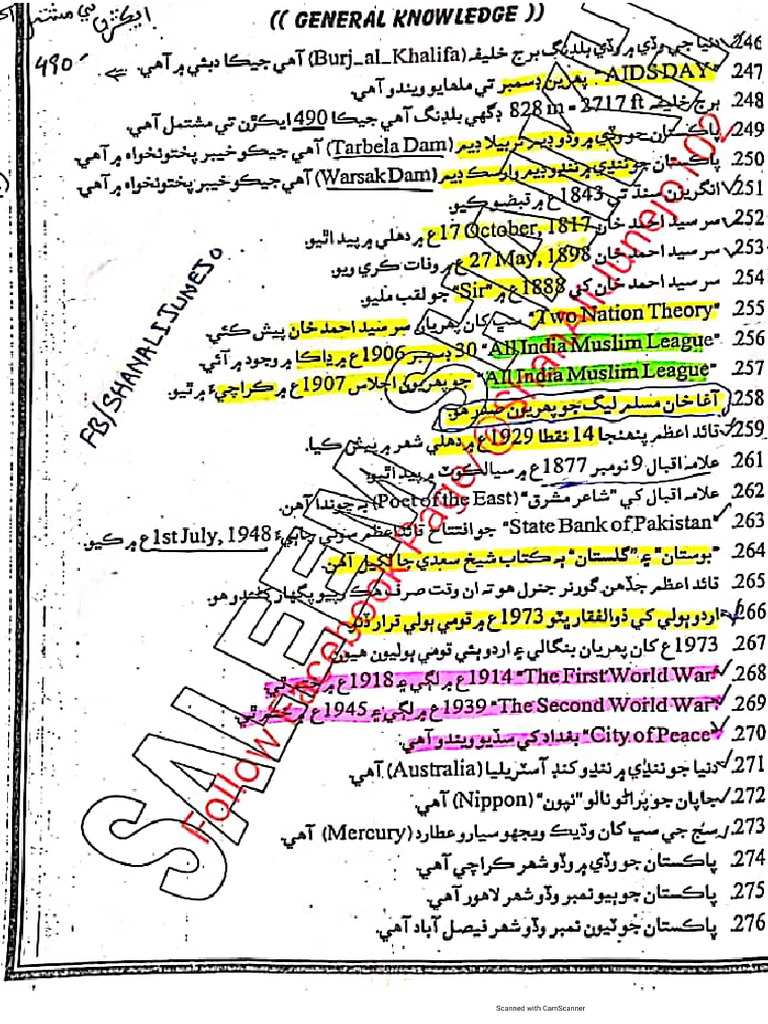 (( GENERAL KNOWLEDGE ))
490
246. دنيا جي وڏي ۾ وڏي بلڊنگ برج خليفه (Burj_al_Khalifa) آهي جيڪا دبئي ۾ آهي.
247. "AIDS DAY" پهرين ڊسمبر تي ملهايو ويندو آهي.
248. برج خليفه 828 m = 2717 ft ڊگهي بلڊنگ آهي جيڪا 490 ايڪڙن تي مشتمل آهي.
249. پاڪستان جو وڏي ۾ وڏو ڊيم تربيلا ڊيم (Tarbela Dam) آهي جيڪو خيبر پختونخواه ۾ آهي.
250. پاڪستان جو ننڍي ۾ ننڍو ڊيم وارسڪ ڊيم (Warsak Dam) آهي جيڪو خيبر پختونخواه ۾ آهي.
251. انگريزن سنڌ تي 1843ع ۾ قبضو ڪيو.
252. سر سيد احمد خان 17 October, 1817ع ۾ دهلي ۾ پيدا ٿيو.
253. سر سيد احمد خان 27 May, 1898ع ۾ وفات ڪري ويو.
254. سر سيد احمد خان کي 1888ع ۾ "Sir" جو لقب مليو.
255. "Two Nation Theory" سڀ کان پهريان سر سيد احمد خان پيش ڪئي.
256. "All India Muslim League" 30 ڊسمبر 1906ع ۾ ڍاڪا ۾ وجود ۾ آئي.
257. "All India Muslim League" جو پهريون اجلاس 1907ع ۾ ڪراچيءَ ۾ ٿيو.
258. آغا خان مسلم ليگ جو پهريون صدر هو.
259. قائد اعظم پنهنجا 14 نقطا 1929ع ۾ دهلي شهر ۾ پيش ڪيا.
261. علامه اقبال 9 نومبر 1877ع ۾ سيالڪوٽ ۾ پيدا ٿيو.
262. علامه اقبال کي "شاعر مشرق" (Poet of the East) به چوندا آهن.
263. "State Bank of Pakistan" جو افتتاح قائد اعظم محمد علي جناح 1st July, 1948ع ۾ ڪيو.
264. "بوستان" ۽ "گلستان" به ڪتاب شيخ سعدي جا لکيل آهن.
265. قائد اعظم جڏهن گورنر جنرل هو ته ان وقت صرف هڪ رپيو پگهار کڻندو هو.
266. اردو ٻولي کي ذوالفقار ڀٽو 1973ع ۾ قومي ٻولي قرار ڏنو.
267. 1973ع کان پهريان بنگالي ۽ اردو ٻئي قومي ٻوليون هيون.
268. "The First World War" 1914ع ۾ لڳي ۽ 1918ع ۾ ختم ٿي.
269. "The Second World War" 1939ع ۾ لڳي ۽ 1945ع ۾ ختم ٿي.
270. "City of Peace" بغداد کي سڏيو ويندو آهي.
271. دنيا جو ننڍي ۾ ننڍو کنڊ آسٽريليا (Australia) آهي.
272. جاپان جو پراڻو نالو "نپون" (Nippon) آهي.
273. سج جي سڀ کان وڌيڪ ويجهو سيارو عطارد (Mercury) آهي.
274. پاڪستان جو وڏي ۾ وڏو شهر ڪراچي آهي.
275. پاڪستان جو ٻيو نمبر وڏو شهر لاهور آهي.
276. پاڪستان جو ٽيون نمبر وڏو شهر فيصل آباد آهي.
FB/SHANALIJUNEJO
SALEEM
Follow Facebook Page/@ShanAliJunejo102
Scanned with CamScanner